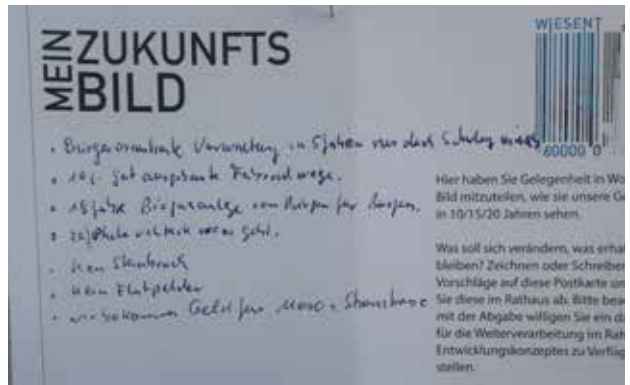 MEIN
ZUKUNFTS
BILD
WIESENT
60000 0
• Bürgerorientierte Verwaltung in 5 Jahren
• 10 J. gut ausgebaute Fahrradwege.
• 15 Jahre von Bürgern für Bürgern.
• 20 J.
• Kein Steinbruch
• Kein Flutpolder
• wir bekommen Geld für
Hier haben Sie Gelegenheit in Wo
Bild mitzuteilen, wie sie unsere Ge
in 10/15/20 Jahren sehen.
Was soll sich verändern, was erhal
bleiben? Zeichnen oder Schreiben
Vorschläge auf diese Postkarte un
Sie diese im Rathaus ab. Bitte bea
mit der Abgabe willigen Sie ein da
für die Weiterverarbeitung im Rah
Entwicklungskonzeptes zu Verfüg
stellen.